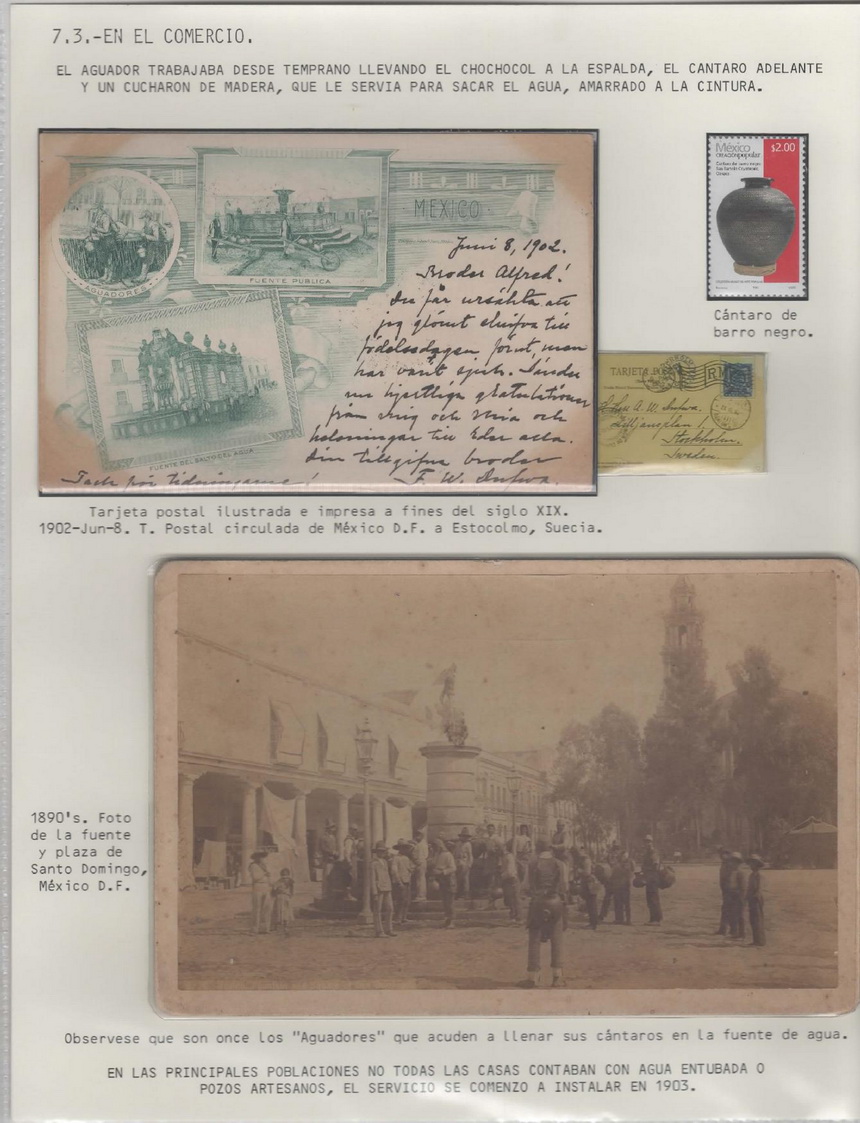 7.3.-EN EL COMERCIO.
EL AGUADOR TRABAJABA DESDE TEMPRANO LLEVANDO EL CHOCHOCOL A LA ESPALDA, EL CANTARO ADELANTE
Y UN CUCHARON DE MADERA, QUE LE SERVIA PARA SACAR EL AGUA, AMARRADO A LA CINTURA.
MEXICO
AGUADORES
FUENTE PUBLICA
FUENTE DEL SALTO DEL AGUA
Juni 8, 1902.
Broder Alfred!
Du får ursäkta att
jag glömt skrifva till
födelsedagen förut, men
har varit sjuk. Sänder
nu hjertliga gratulationer
från mig och Maria och
helsningar till Eder alla.
Din tillgifne broder
F. W.
Tack för tidningarne!
México
creación popular
$2.00
Cántaro de barro negro
Cántaro de
barro negro.
TARJETA
A. W.
Lilljansplan 1,
Stockholm.
Sweden.
Tarjeta postal ilustrada e impresa a fines del siglo XIX.
1902-Jun-8. T. Postal circulada de México D.F. a Estocolmo, Suecia.
1890's. Foto
de la fuente
y plaza de
Santo Domingo,
México D.F.
Observese que son once los "Aguadores" que acuden a llenar sus cántaros en la fuente de agua.
EN LAS PRINCIPALES POBLACIONES NO TODAS LAS CASAS CONTABAN CON AGUA ENTUBADA O
POZOS ARTESANOS, EL SERVICIO SE COMENZO A INSTALAR EN 1903.